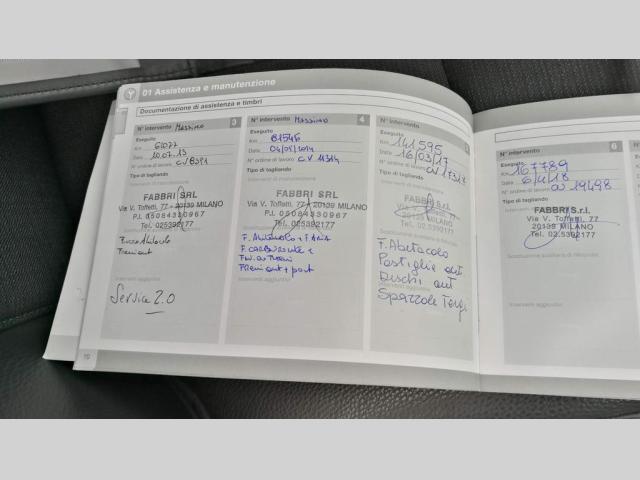 01 Assistenza e manutenzione
Documentazione di assistenza e timbri
N° intervento Massimo 3
Eseguito
Km 61077
Data 10.07.13
N° ordine di lavoro
Tipo di tagliando
Interventi di manutenzione
FABBRI SRL
Via V. Toffetti, 77 - 20139 MILANO
P.I. 05084330967
Tel. 025392177
Interventi aggiuntivi
Service 2.0
10
N° intervento Massimo 4
Eseguito
Km 81546
Data 04/05/2014
N° ordine di lavoro CV 11314
Tipo di tagliando
Interventi di manutenzione
FABBRI SRL
Via V. Toffetti, 77 - 20139 MILANO
P.I. 05084330967
Tel. 025392177
F. Abitacolo + F. Aria
F. carburante +
Freni ant + post
N° intervento 5
Eseguito
Km 141595
Data 16/03/17
N° ordine di lavoro
Tipo di tagliando
FABBRI S.r.l.
Via V. Toffetti, 77
20139 MILANO
Tel. 025392177
F. Abitacolo
Pastiglie ant
Dischi ant
Spazzole Tergi
N° intervento 6
Eseguito
Km 167789
Data 6/4/18
N° ordine di lavoro 19498
Tipo di tagliando
FABBRI S.r.l.
Via V. Toffetti, 77
20139 MILANO
Tel. 025392177
Interventi aggiuntivi